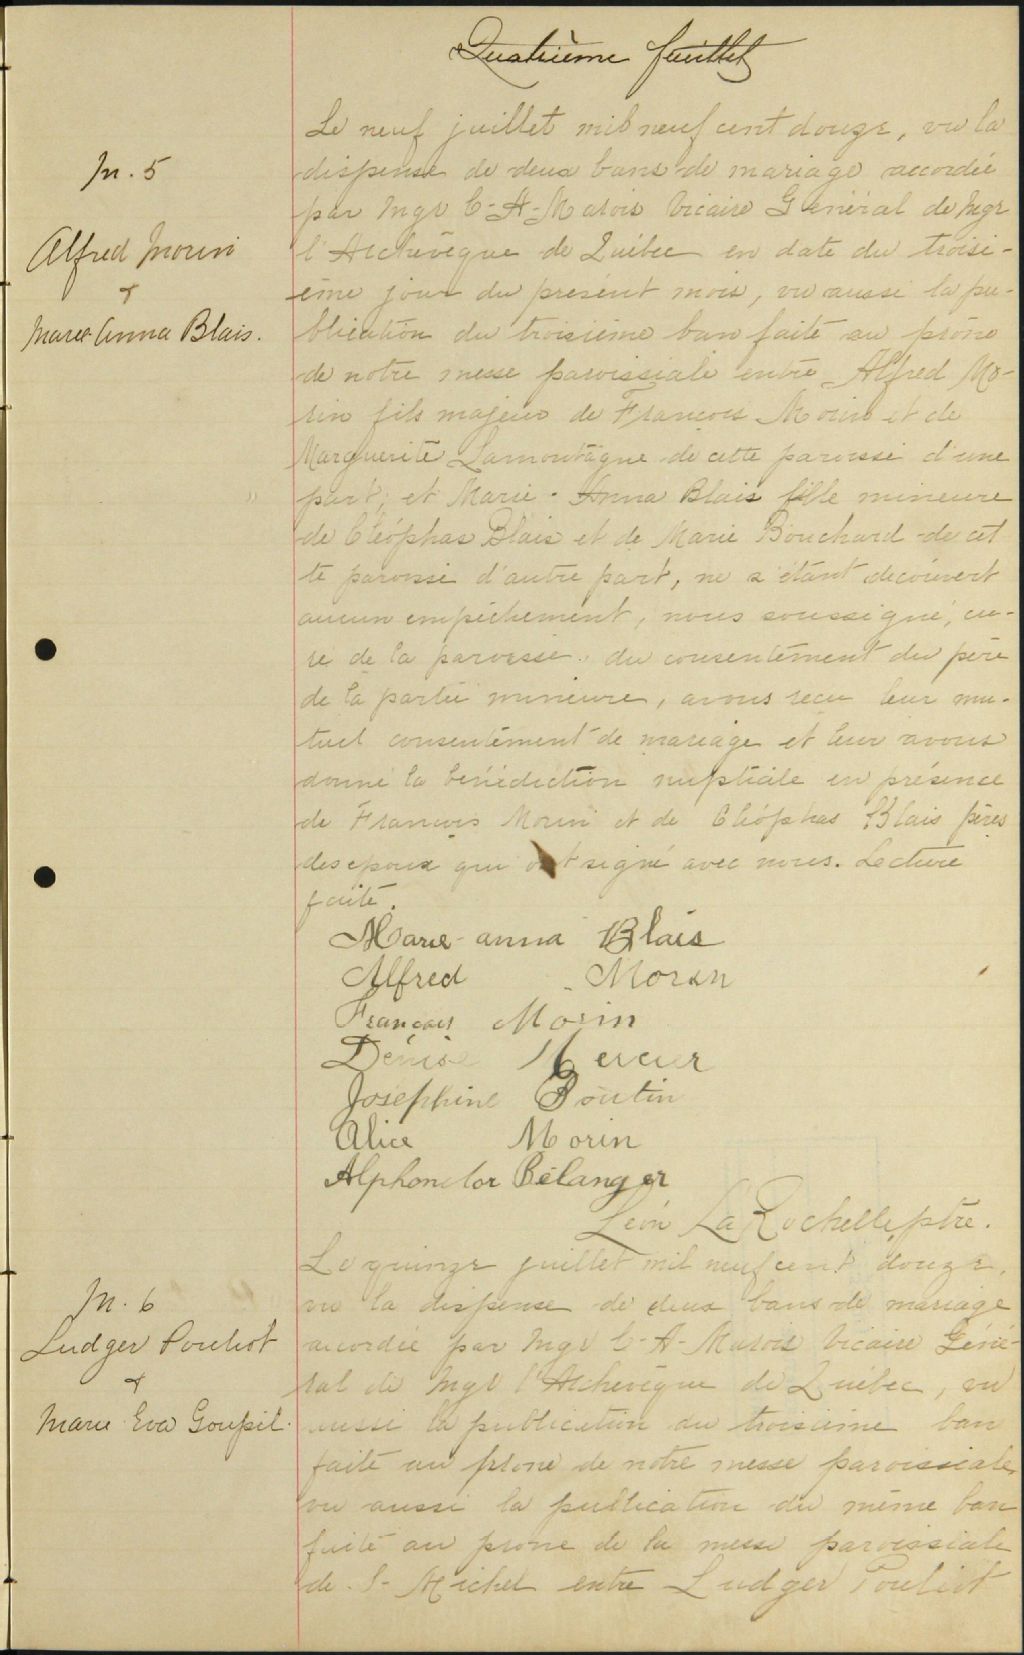 Quatrième feuillet
M. 5
Alfred Morin
&
Marie-Anna Blais.
Le neuf juillet mil neuf cent douze, vu la
dispense de deux bans de mariage accordée
par Mgr C-A-Marois Vicaire Général de Mgr
l'Archevêque de Québec en date du troisi-
ème jour du présent mois, vu aussi la pu-
blication du troisième ban faite au prône
de notre messe paroissiale entre Alfred Mo-
rin fils majeur de François Morin et de
Marguerite Lamontagne de cette paroisse d'une
part, et Marie-Anna Blais fille mineure
de Cléophas Blais et de Marie Bouchard de cet
te paroisse d'autre part, ne s'étant découvert
aucun empêchement, nous soussigné, cu-
ré de la paroisse, du consentement du père
de la partie mineure, avons reçu leur mu-
tuel consentement de mariage et leur avons
donné la bénédiction nuptiale en présence
de François Morin et de Cléophas Blais pères
des époux qui ont signé avec nous. Lecture
faite.
Marie-anna Blais
Alfred Morin
François Morin
Dénise Mercier
Joséphine Boutin
Alice Morin
Bélanger
Léon LaRochelle, ptre.
M. 6
Ludger Pouliot
&
Marie Eva Goupil.
Le quinze juillet mil neuf cent douze,
vu la dispense de deux bans de mariage
accordée par Mgr C-A-Marois Vicaire Géné-
ral de Mgr l'Archevêque de Québec, vu
aussi la publication du troisième ban
faite au prône de notre messe paroissiale,
vu aussi la publication du même ban
faite au prone de la messe paroissiale
de S-Michel entre Ludger Pouliot